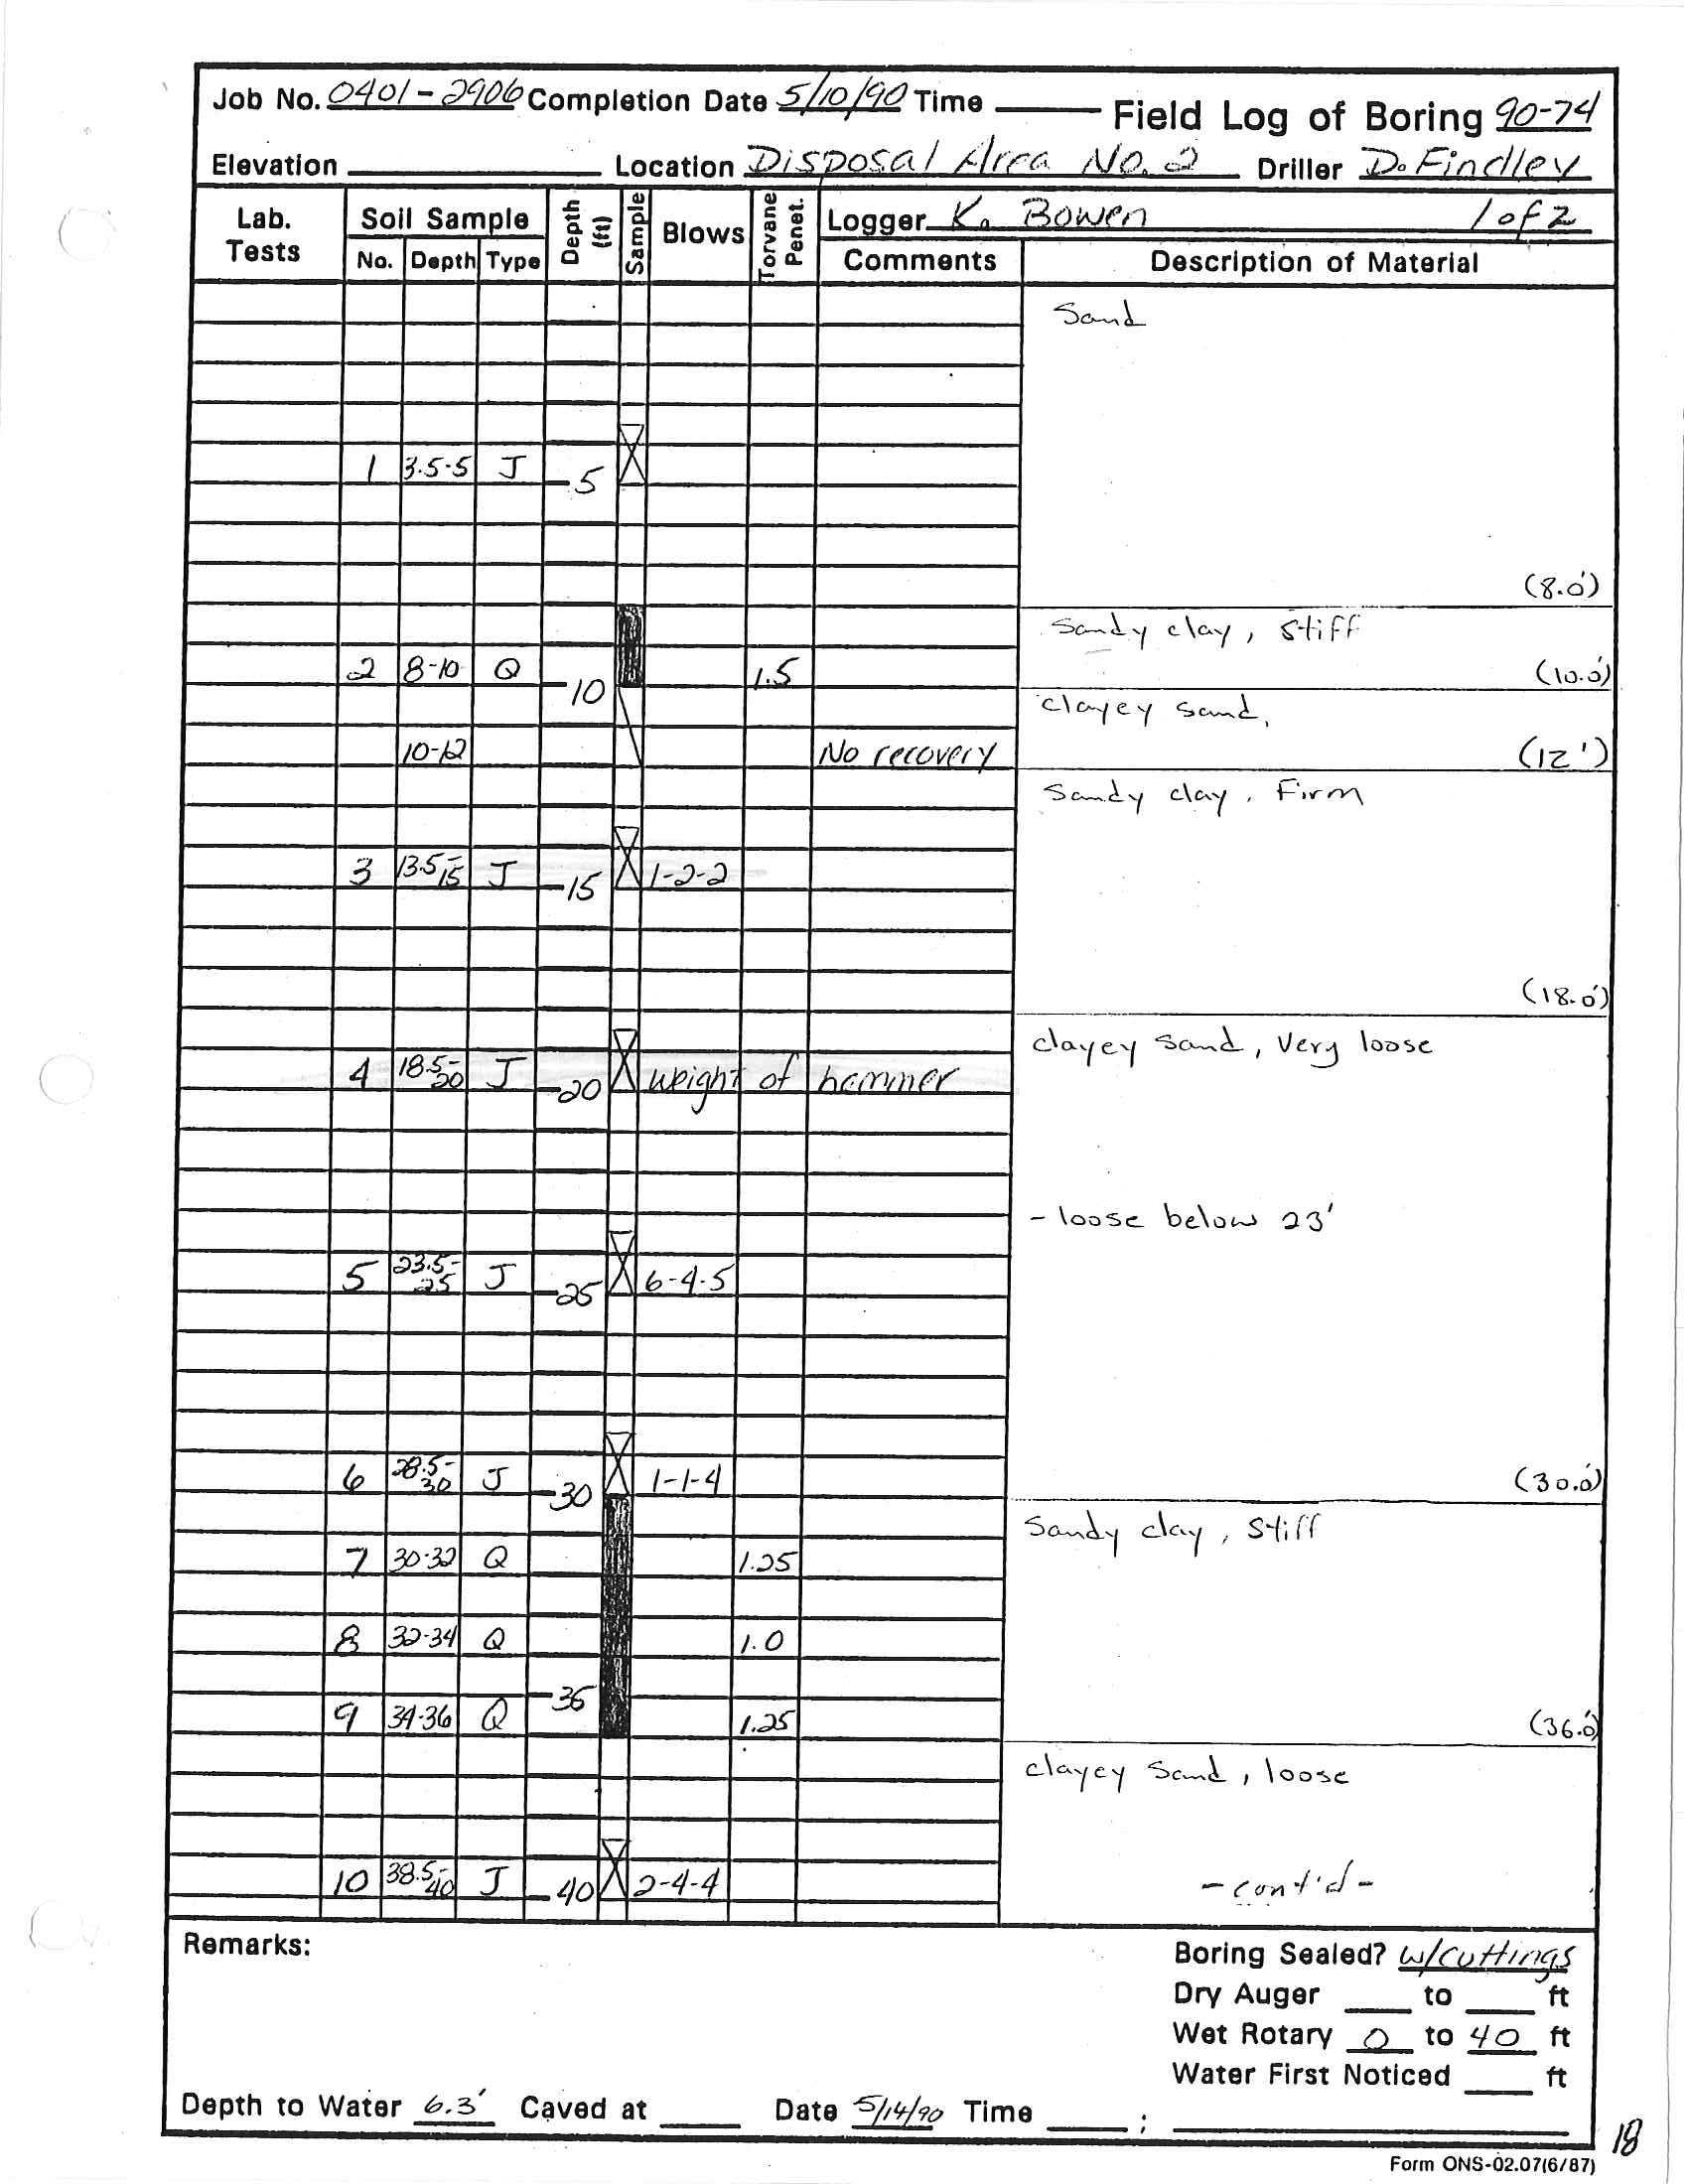 Job No. 0401-2906 Completion Date 5/10/90 Time Field Log of Boring 90-74
Elevation Location Disposal Area No. 2 Driller D. Findley
Lab. Tests Soil Sample Depth (ft) Sample Blows Torvane Penet. Logger K. Bowen 1 of 2
No. Depth Type Comments Description of Material
Sand
1 3.5-5 J 5
(8.0')
Sandy clay, stiff
2 8-10 Q 10 1.5 (10.0')
clayey sand,
10-12 No recovery (12')
Sandy clay, Firm
3 13.5-15 J 15 1-2-2
(18.0')
clayey sand, very loose
4 18.5-20 J 20 weight of hammer
- loose below 23'
5 23.5-25 J 25 6-4-5
6 28.5-30 J 30 1-1-4 (30.0')
Sandy clay, stiff
7 30-32 Q 1.25
8 32-34 Q 1.0
35
9 34-36 Q 1.25 (36.0')
clayey sand, loose
10 38.5-40 J 40 2-4-4 - cont'd -
Remarks:
Boring Sealed? w/cuttings
Dry Auger to ft
Wet Rotary 0 to 40 ft
Water First Noticed ft
Depth to Water 6.3' Caved at Date 5/14/90 Time ;
18
Form ONS-02.07(6/87)